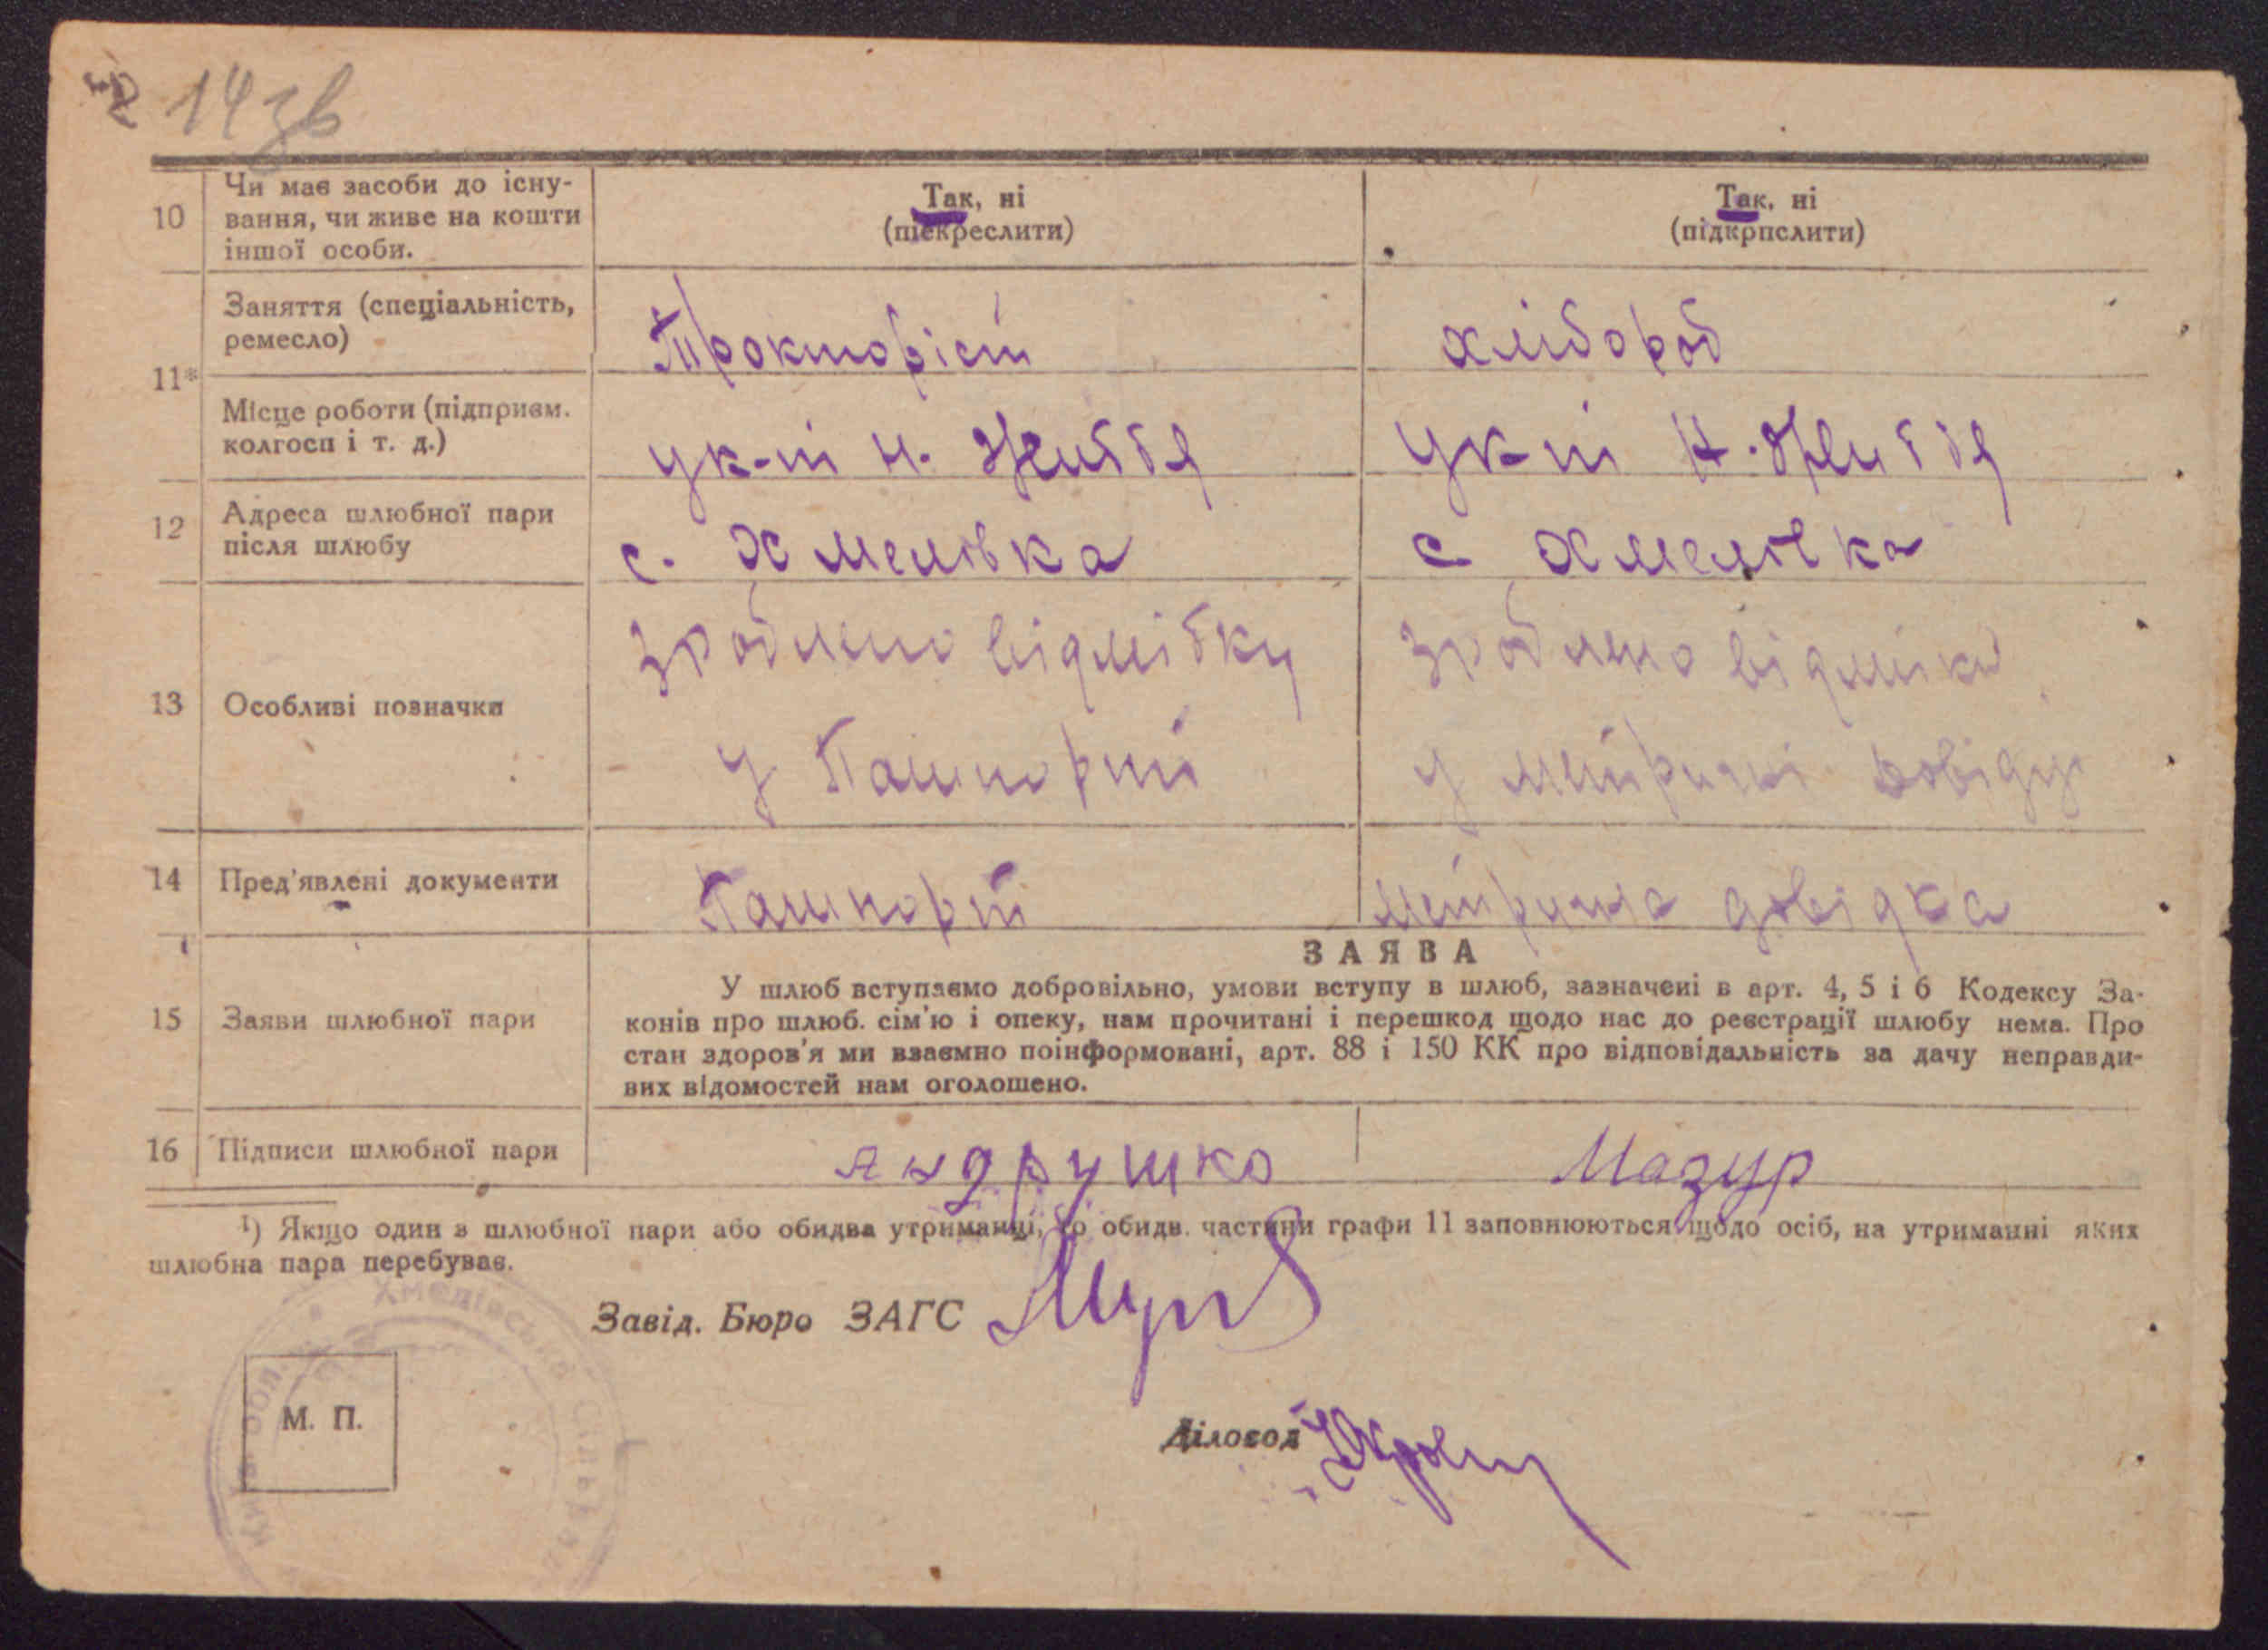 14 зв
10 Чи має засоби до існу-
вання, чи живе на кошти
іншої особи.
Так, ні
(піекреслити)
Так, ні
(підкрпслити)
11*
Заняття (спеціальність,
ремесло)
Трокторіст
хлібороб
Місце роботи (підприєм.
колгосп і т. д.)
ук-т Н. Життя
ук-т Н. Життя
12 Адреса шлюбної пари
після шлюбу
с. Хмелівка
с Хмелівка
13 Особливі позначки
Зроблено відмітку
у Пашпорті
Зроблено відміку
у метричкі
14 Пред'явлені документи
Пашпорт
метрична довідка
15 Заяви шлюбної пари
ЗАЯВА
У шлюб вступаємо добровільно, умови вступу в шлюб, зазначені в арт. 4, 5 і 6 Кодексу За-
конів про шлюб. сім'ю і опеку, нам прочитані і перешкод щодо нас до реєстрації шлюбу нема. Про
стан здоров'я ми взаємно поінформовані, арт. 88 і 150 КК про відповідальність за дачу неправди-
вих відомостей нам оголошено.
16 Підписи шлюбної пари
Андрушко
Мазур
1) Якщо один з шлюбної пари або обидва утриманці, то обидв. частини графи 11 заповнюються щодо осіб, на утриманні яких
шлюбна пара перебуває.
Завід. Бюро ЗАГС
М. П.
Діловод
Хмелівська Сільрада